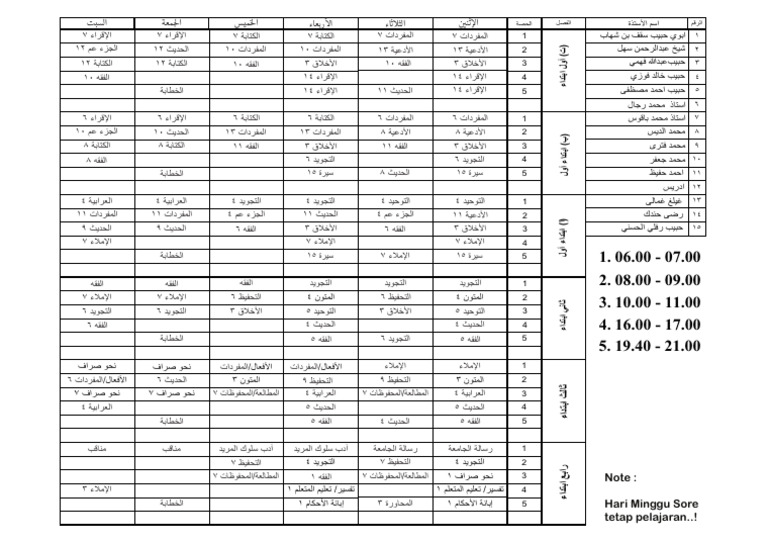 الرقم اسم الأستاذة الفصل الحصة الإثنين الثلاثاء الأربعاء الخميس الجمعة السبت
١ ابوي حبيب سقف بن شهاب
٢ شيخ عبدالرحمن سهل
٣ حبيب عبدالله فهمي
٤ حبيب خالد فوزي
٥ حبيب احمد مصطفى
٦ استاذ محمد رجال
٧ استاذ محمد باقوس
٨ محمد الديس
٩ محمد فترى
١٠ محمد جعفر
١١ احمد حفيظ
١٢ ادريس
١٣ غيلغ غمالى
١٤ رضى حندك
١٥ حبيب رفلي الحسني
(ت) أول ابتداء
1 المفردات ٧ المفردات ٧ الكتابة ٧ الكتابة ٧ الإقراء ٧ الإقراء ٧
2 الأدعية ١٣ الأدعية ١٣ المفردات ١٠ المفردات ١٠ الحديث ١٢ الجزء عم ١٢
3 الأخلاق ٣ الفقه ١٠ الأخلاق ٣ الفقه ١٠ الكتابة ١٢ الكتابة ١٢
4 الإقراء ١٤ الإقراء ١٤ الفقه ١٠
5 الإقراء ١٤ الحديث ١١ الإقراء ١٤ الخطابة
(ب) ابتداء أول
1 المفردات ٦ المفردات ٦ الكتابة ٦ الكتابة ٦ الإقراء ٦ الإقراء ٦
2 الأدعية ٨ الأدعية ٨ المفردات ١٣ المفردات ١٣ الحديث ١٠ الجزء عم ١٠
3 الأخلاق ٣ الفقه ١١ الأخلاق ٣ الفقه ١١ الكتابة ٨ الكتابة ٨
4 التجويد ٦ التجويد ٦ الفقه ٨
5 سيرة ١٥ الحديث ٨ سيرة ١٥ الخطابة
(أ) ابتداء أول
1 التوحيد ٤ التوحيد ٤ التجويد ٤ التجويد ٤ العرابية ٤ العرابية ٤
2 الأدعية ١١ الجزء عم ٤ الحديث ١١ الجزء عم ٤ المفردات ١١ المفردات ١١
3 الأخلاق ٣ الفقه ٦ الأخلاق ٣ الفقه ٦ الحديث ٩ الحديث ٩
4 الإملاء ٧ الإملاء ٧ الإملاء ٧
5 سيرة ١٥ الإملاء ٧ سيرة ١٥ الخطابة
ثاني ابتداء
1 التجويد التجويد التجويد الفقه الفقه الفقه
2 المتون ٤ التحفيظ ٦ المتون ٤ التحفيظ ٦ الإملاء ٧ الإملاء ٧
3 التوحيد ٥ الأخلاق ٣ التوحيد ٥ الأخلاق ٣ الحديث ٤ الفقه ٦
4 الحديث ٤ الحديث ٤ الفقه ٦
5 الفقه ٥ التجويد ٦ الفقه ٥ الخطابة
ثالث ابتداء
1 الإملاء الإملاء الأفعال/المفردات الأفعال/المفردات نحو صراف نحو صراف
2 المتون ٣ التحفيظ ٩ التحفيظ ٩ المتون ٣ الحديث ٦ الأفعال/المفردات ٦
3 العرابية ٤ المطالعة/المحفوظات ٧ العرابية ٤ المطالعة/المحفوظات ٧ نحو صراف ٧ نحو صراف ٧
4 الحديث ٥ الحديث ٥ العرابية ٤
5 الفقه ٥ الحديث ٤ الفقه ٥ الخطابة
رابع ابتداء
1 رسالة الجامعة رسالة الجامعة أدب سلوك المريد أدب سلوك المريد مناقب مناقب
2 التجويد ٤ التجويد ٤ التحفيظ ٧
3 نحو صراف ١ المطالعة/المحفوظات ٧ الفقه ١ المطالعة/المحفوظات ٧
4 تفسير/ تعليم المتعلم ١ تفسير/ تعليم المتعلم ١ الإملاء ٣
5 إبانة الأحكام ١ المحاورة ٣ إبانة الأحكام ١ الخطابة
1. 06.00 - 07.00
2. 08.00 - 09.00
3. 10.00 - 11.00
4. 16.00 - 17.00
5. 19.40 - 21.00
Note :
Hari Minggu Sore
tetap pelajaran..!